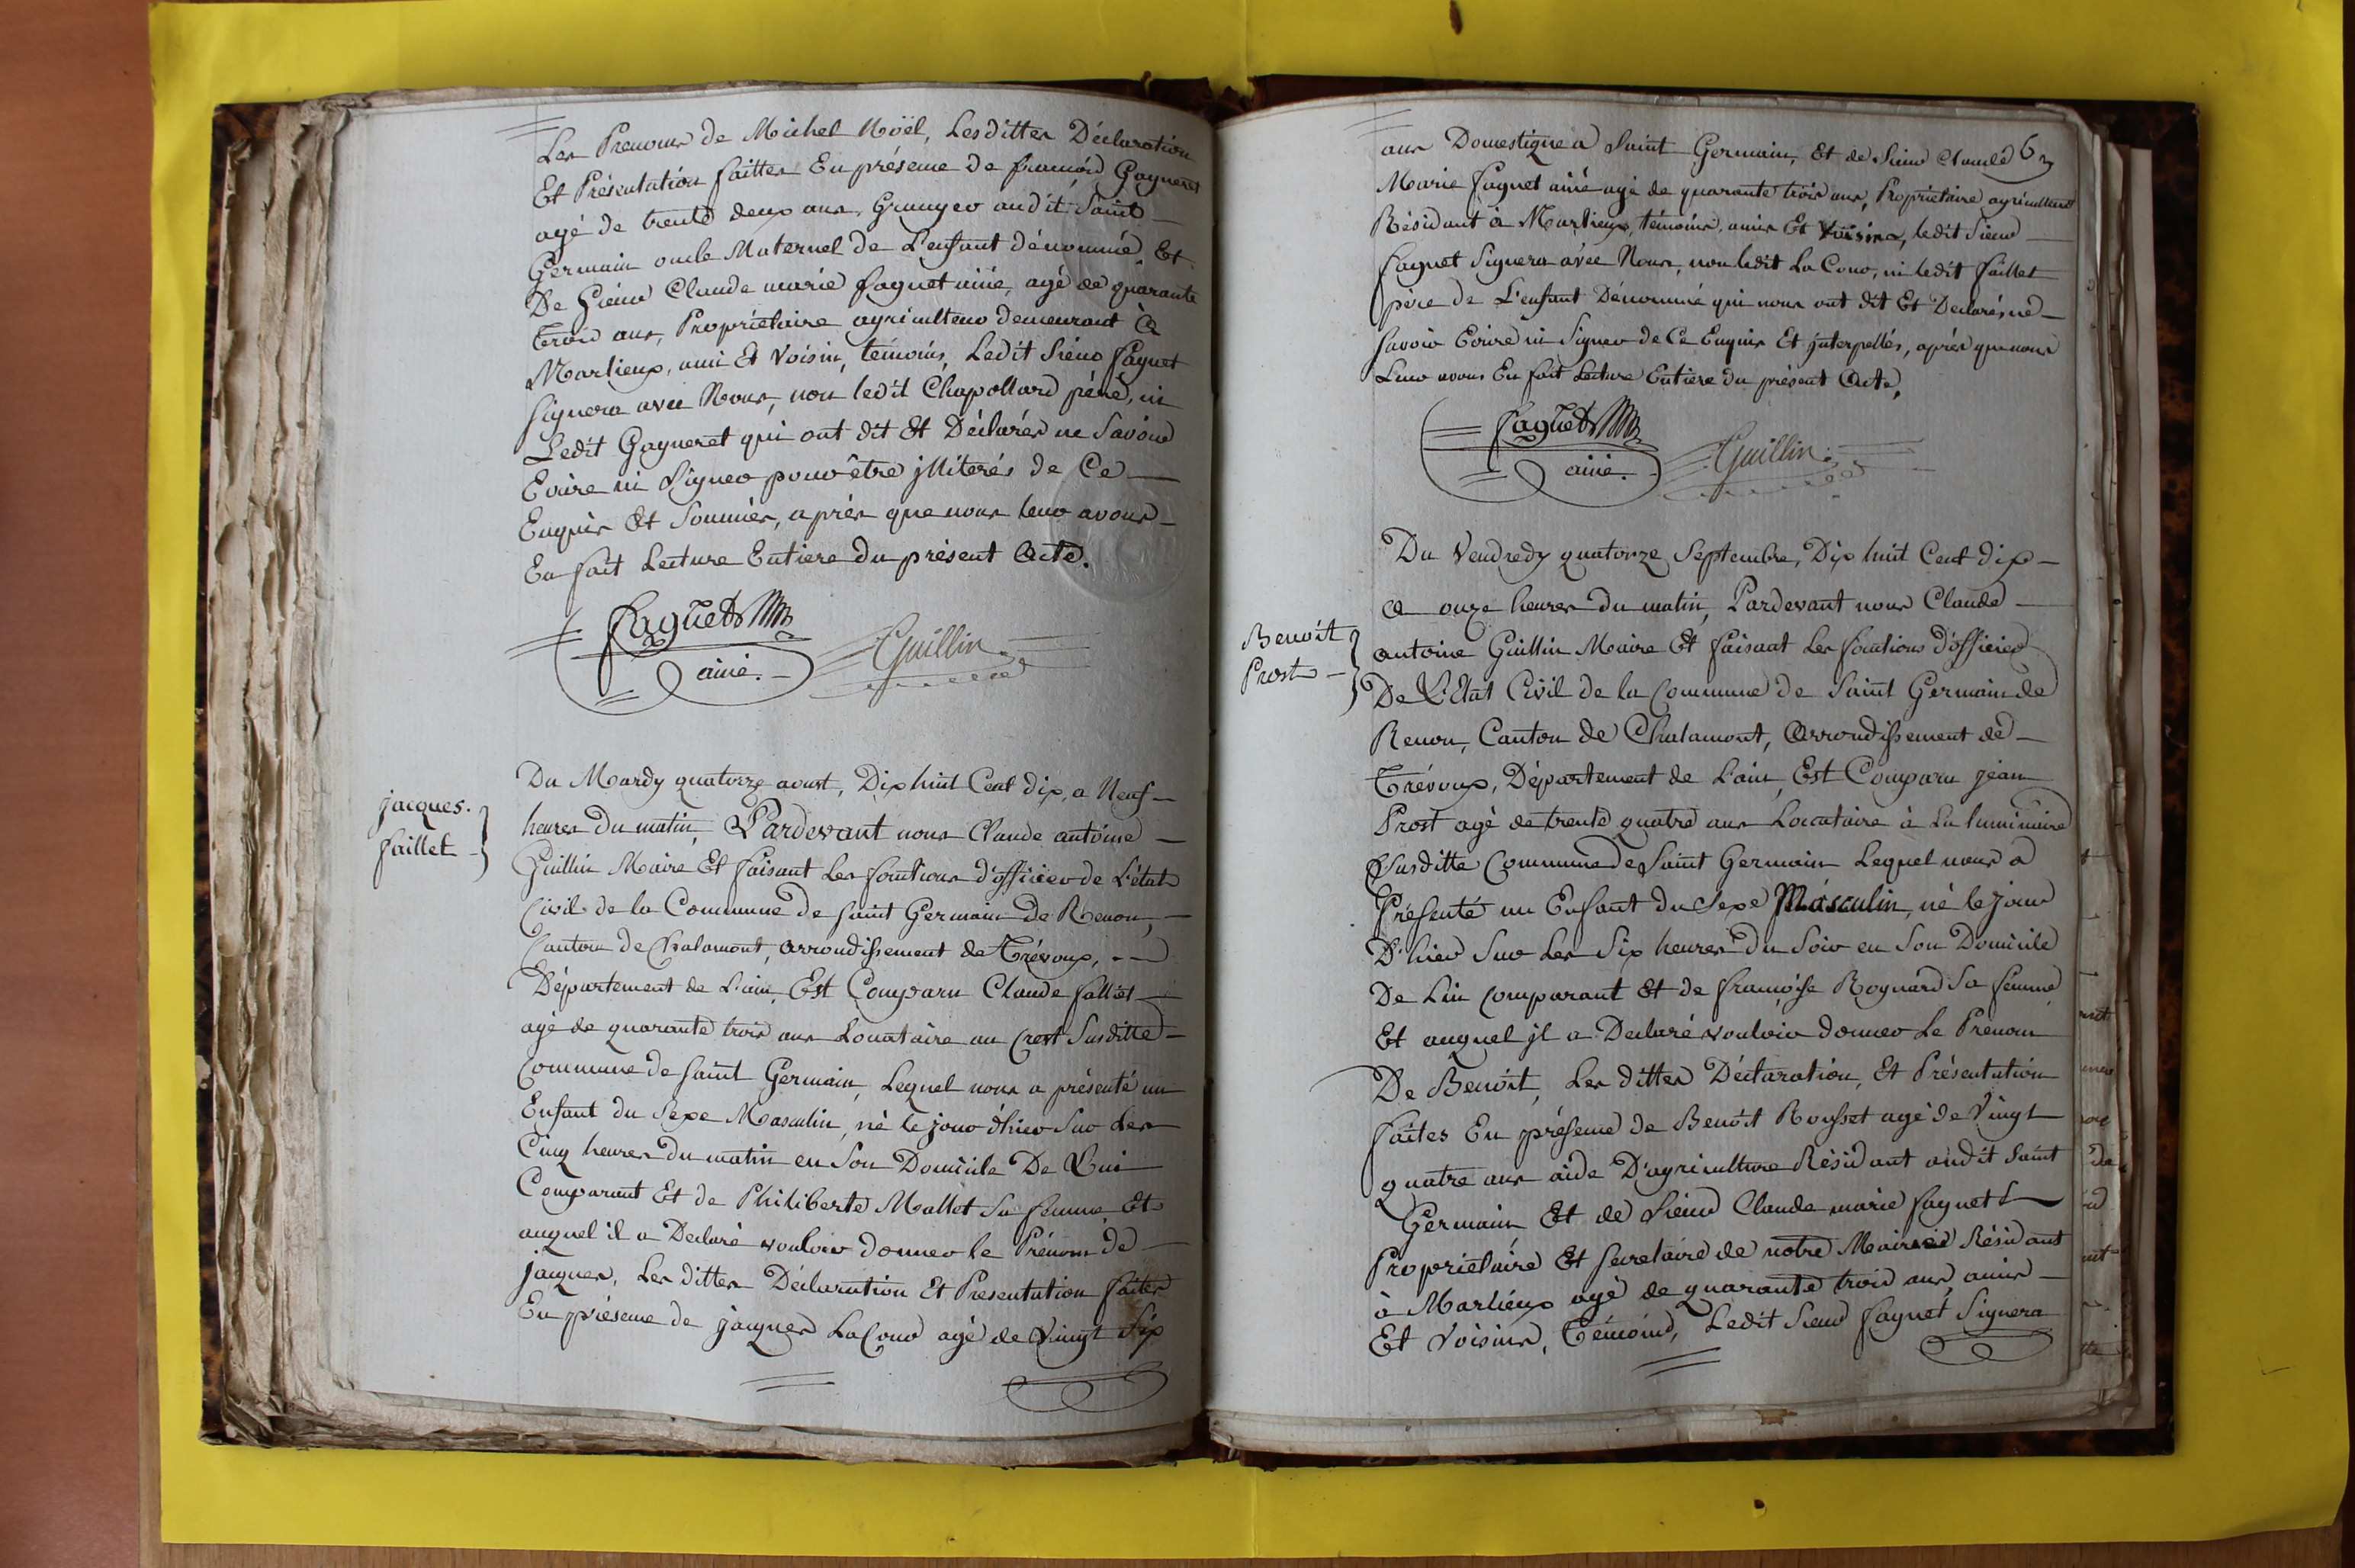 Les Prenoms de Michel Noël, Lesdittes Déclaration
Et Présentation faittes En présence de francois Gagneret
agé de trente deux ans, Granger audit Saint
Germain oncle Maternel de L'enfant dénommé, Et
De Sieur Claude marie faguet ainé, agé de quarante
trois ans, Propriétaire agriculteur demeurant à
Marlieux, ami Et Voisin, temoins, Ledit Sieur faguet
signera avec Nous, non ledit Chapollard père, ni
Ledit Gagneret qui ont dit Et Déclarés ne Savoir
Ecrire ni Signer pour être jlliterés de Ce
Enquis Et Sommés, après que nous leur avons
En fait Lecture Entiere du présent Acte.
faguet
ainé.
Guillin
jacques.
faillet
Du Mardy quatorze aoust, Dix huit Cent dix, a Neuf
heures Du matin, Pardevant nous Claude antoine
Guillin Maire Et faisant Les fonctions d'officier de L'état
Civil de la Commune de saint Germain De Renon,
Canton de Chalamont, arrondissement de Trévoux,
Département de L'ain, Est Comparu Claude falliet
agé de quarante trois ans Locataire au Crest Susditte
Commune de saint Germain, Lequel nous a présenté un
Enfant du Sexe Masculin, né le jour d'hier Sur Les
Cinq heures du matin en Son Domicile De Lui
Comparant Et de Philiberte Mallet Sa femme Et
auquel il a Declaré vouloir donner le Prénom de
jacques, Les dittes Déclaration Et Presentation faites
En présence de jacques LaCour agé de Vingt Six
6
ans Domestique a Saint Germain, Et de Sieur Claude
Marie faguet ainé agé de quarante trois ans, Propriétaire agriculteur
Résidant à Marlieux, témoins, amis Et Voisins, ledit Sieur
faguet Signera avec Nous, non ledit La Cour, ni ledit faillet
père de L'enfant Dénommé qui nous ont dit Et Declarés ne
savoir Ecrire ni Signer de Ce Enquis Et jnterpellés, après que nous
Leur avons En fait Lecture Entiere du présent Acte,
faguet
ainé.
Guillin
Benoit
Prost
Du Vendredy quatorze Septembre, Dix huit Cent dix
a onze heures du matin, Pardevant nous Claude
antoine Guillin Maire Et faisant Les fonctions d'officier
De L'Etat Civil de la Commune de Saint Germain de
Renon, Canton de Chalamont, Arrondissement de
Trévoux, Département de L'ain, Est Comparu jean
Prost agé de trente quatre ans Locataire à La luminaire
Susditte Commune de Saint Germain Lequel nous a
Présenté un Enfant du Sexe Masculin, né le jour
D'hier Sur Les Six heures du Soir en Son Domicile
De Lui Comparant Et de françoise Rognard Sa femme
Et auquel jl a Declaré vouloir donner Le Prenom
De Benoit, Les dittes Déclaration, Et Présentation
faites En présence de Benoit Rousset agé de Vingt
quatre ans aide D'agriculture Résidant audit Saint
Germain Et de Sieur Claude marie faguet
Propriétaire Et Secretaire de notre Mairie Résidant
à Marlieux agé de quarante trois ans, amis
Et Voisins, Témoins, Ledit Sieur faguet Signera